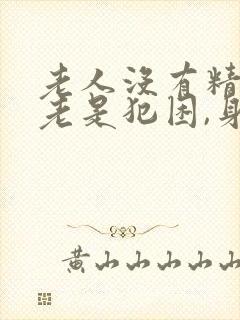 老人没有精
老是犯困,身
黄山山山山